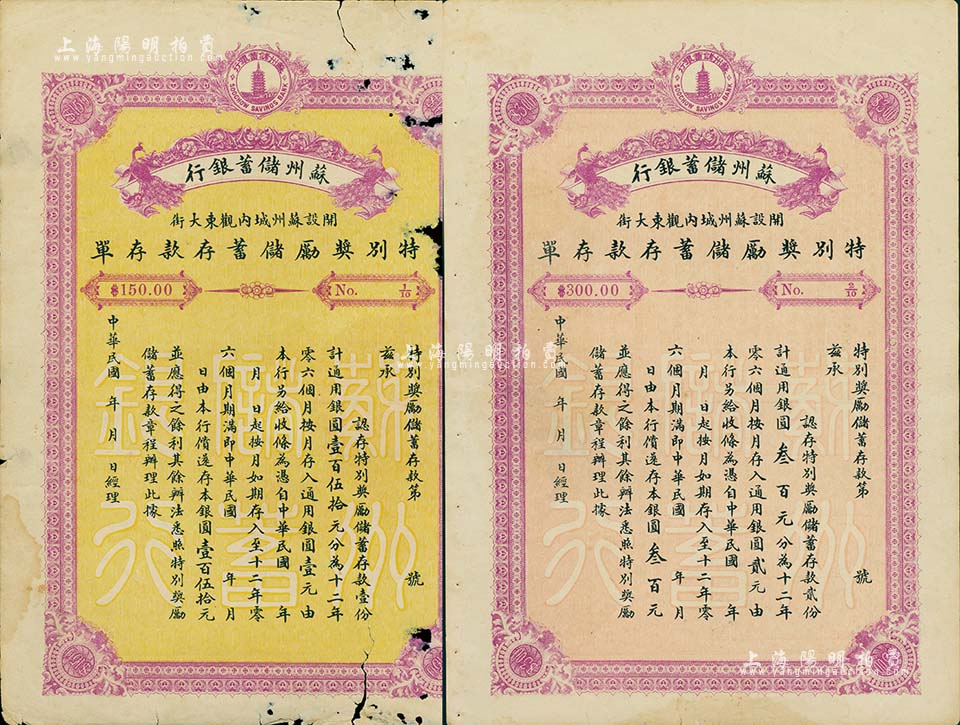 上海陽明拍賣
www.yangmingauction.com
蘇州儲蓄銀行
SOOCHOW SAVINGS BANK
蘇州儲蓄銀行
開設蘇州城內觀東大街
特別獎勵儲蓄存款存單
$150.00
No. 1/10
特別獎勵儲蓄存款第 號
茲承 認存特別獎勵儲蓄存款壹份
計通用銀圓壹百伍拾元分為十二年
零六個月按月存入通用銀圓壹元由
本行另給收條為憑自中華民國 年
月 日起按月如期存入至十二年零
六個月期滿即中華民國 年 月
日由本行償還存本銀圓壹百伍拾元
並應得之餘利其餘辦法悉照特別獎勵
儲蓄存款章程辦理此據
中華民國 年 月 日經理
蘇州儲蓄銀行
蘇州儲蓄銀行
SOOCHOW SAVINGS BANK
蘇州儲蓄銀行
開設蘇州城內觀東大街
特別獎勵儲蓄存款存單
$300.00
No. 2/10
特別獎勵儲蓄存款第 號
茲承 認存特別獎勵儲蓄存款貳份
計通用銀圓叁百元分為十二年
零六個月按月存入通用銀圓貳元由
本行另給收條為憑自中華民國 年
月 日起按月如期存入至十二年零
六個月期滿即中華民國 年 月
日由本行償還存本銀圓叁百元
並應得之餘利其餘辦法悉照特別獎勵
儲蓄存款章程辦理此據
中華民國 年 月 日經理
蘇州儲蓄銀行
上海陽明拍賣
www.yangmingauction.com
上海陽明拍賣
www.yangmingauction.com